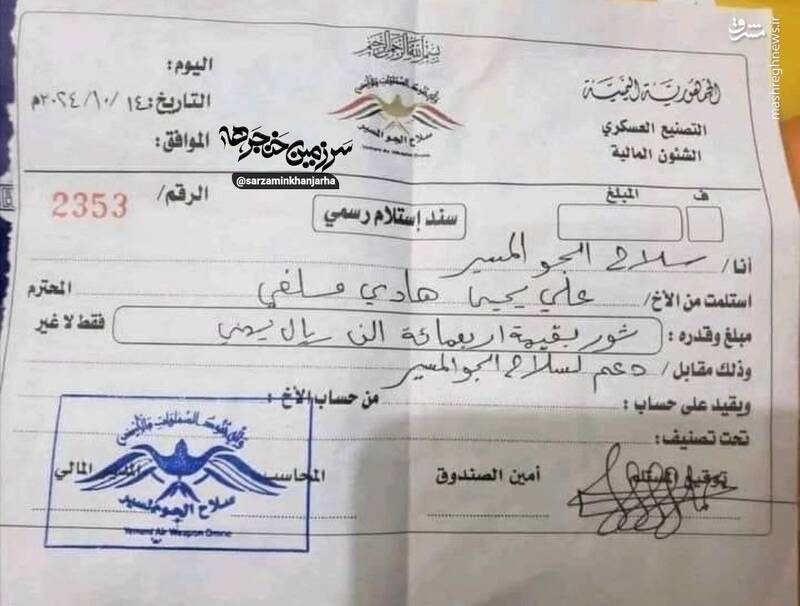 بسم الله الرحمن الرحيم
الجمهورية اليمنية
التصنيع العسكري
الشئون المالية
ولله جنود السماوات والأرض
سلاح الجو المسير
اليوم:
التاريخ: ١٤ / ١٠ / ٢٠٢٤م
الموافق:
الرقم/ 2353
سند إستلام رسمي
ف المبلغ
أنا/ سلاح الجو المسير
استلمت من الأخ/ علي يحيى هادي مسلفي المحترم
مبلغ وقدره : ثور بقيمة اربعمائة الف ريال يمني فقط لا غير
وذلك مقابل/ دعم لسلاح الجو المسير
ويقيد على حساب : من حساب الأخ :
تحت تصنيف:
توقيع المستلم أمين الصندوق المحاسب المدير المالي
ولله جنود السماوات والأرض
سلاح الجو المسير
Yemeni Air Weapon Drone
سرزمین خنجرها
@sarzaminkhanjarha
مشرق
mashreghnews.ir